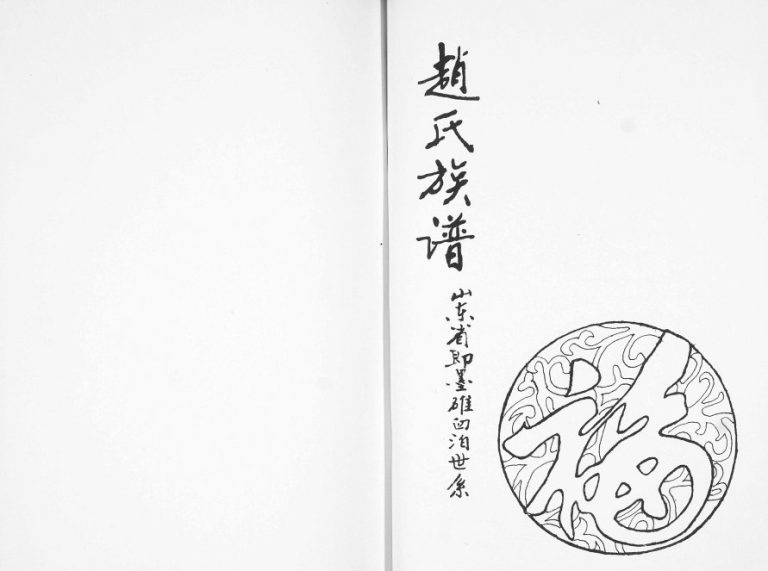 趙氏族谱
山东省即墨碓臼泊世系
福